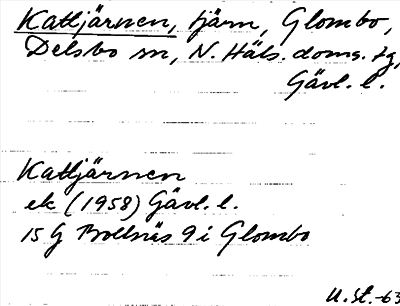 Kattjärnen, tjärn, Glombo,
Delsbo sn, N. Häls. doms. tg,
Gävl. l.
Kattjärnen
ek (1958) Gävl. l.
15 G Bollnäs 9 i Glombo
U. St. -63